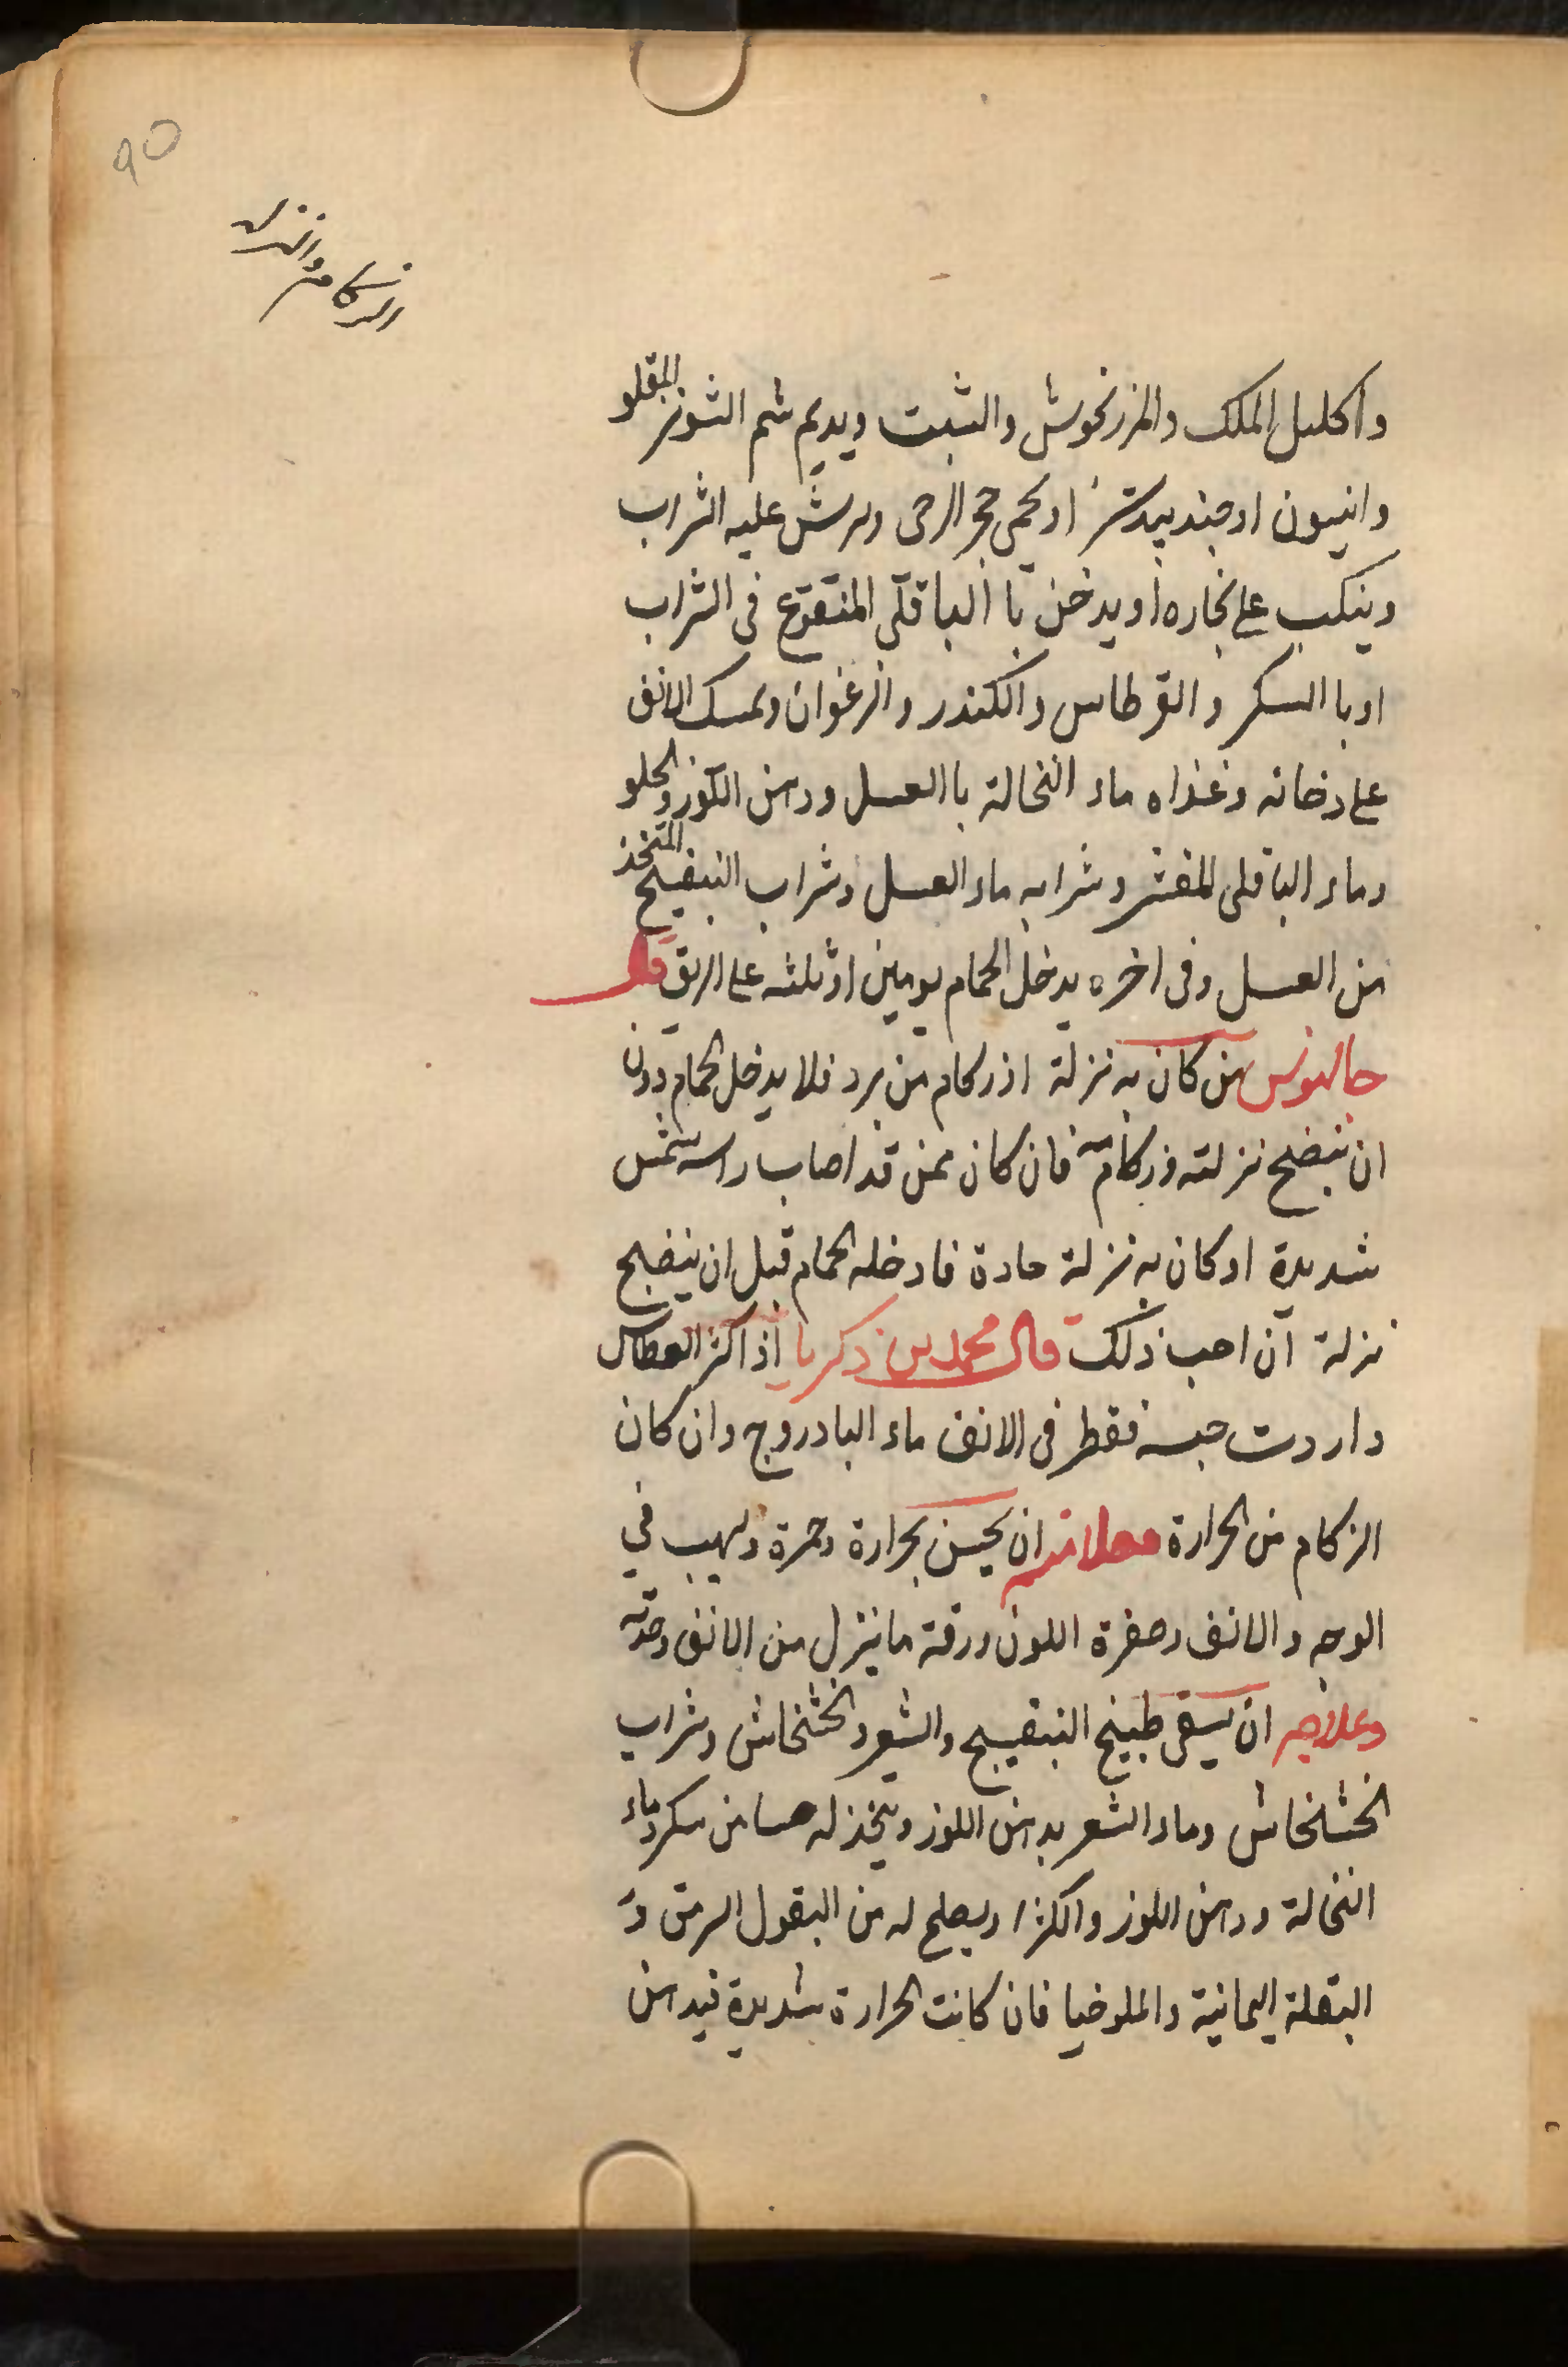 90
الزكام والنزلة
واكليل الملك والمرزنجوش والشبت ويديم شم الشونيز المقلو
وانيسون او جندبيدستر او يحمى حجر الرحى ويرش عليه الشراب
وينكب على بخاره او يدخن با الباقلى المنقوع فى الشراب
او با السكر والقرطاس والكندر والزعفران ويمسك الانف
على دخانه وغذاه ماء النخالة با العسل ودهن اللوز الحلو
وماء الباقلى المقشر وشرابه ماء العسل وشراب البنفسج المتخذ
من العسل وفى اخره يدخل الحمام يومين او ثلثه على الريق قال
جالينوس من كان به نزلة او زكام من برد فلا يدخل الحمام دون
ان ينضج نزلته وزكامه فان كان ممن قد اصاب راسه شمس
شديدة او كان به نزلة حادة فادخله الحمام قبل ان ينضج
نزلة ان احب ذلك قال محمد بن زكريا اذا كثر العطاس
واردت حبسه فقطر فى الانف ماء البادروج وان كان
الزكام من الحرارة فعلامته ان يحس بحرارة وحمرة ولهيب في
الوجه والانف وصفرة اللون ورقة ما ينزل من الانف وحدته
وعلاجه ان يسقى طبيخ البنفسج والشعير والخشخاش وشراب
الخشخاش وماء الشعير بدهن اللوز ويتخذ له حسا من سكر وماء
النخالة ودهن اللوز والكثرا ويصلح له من البقول السرمق و
البقلة اليمانية والملوخيا فان كانت الحرارة شديدة فيدهن